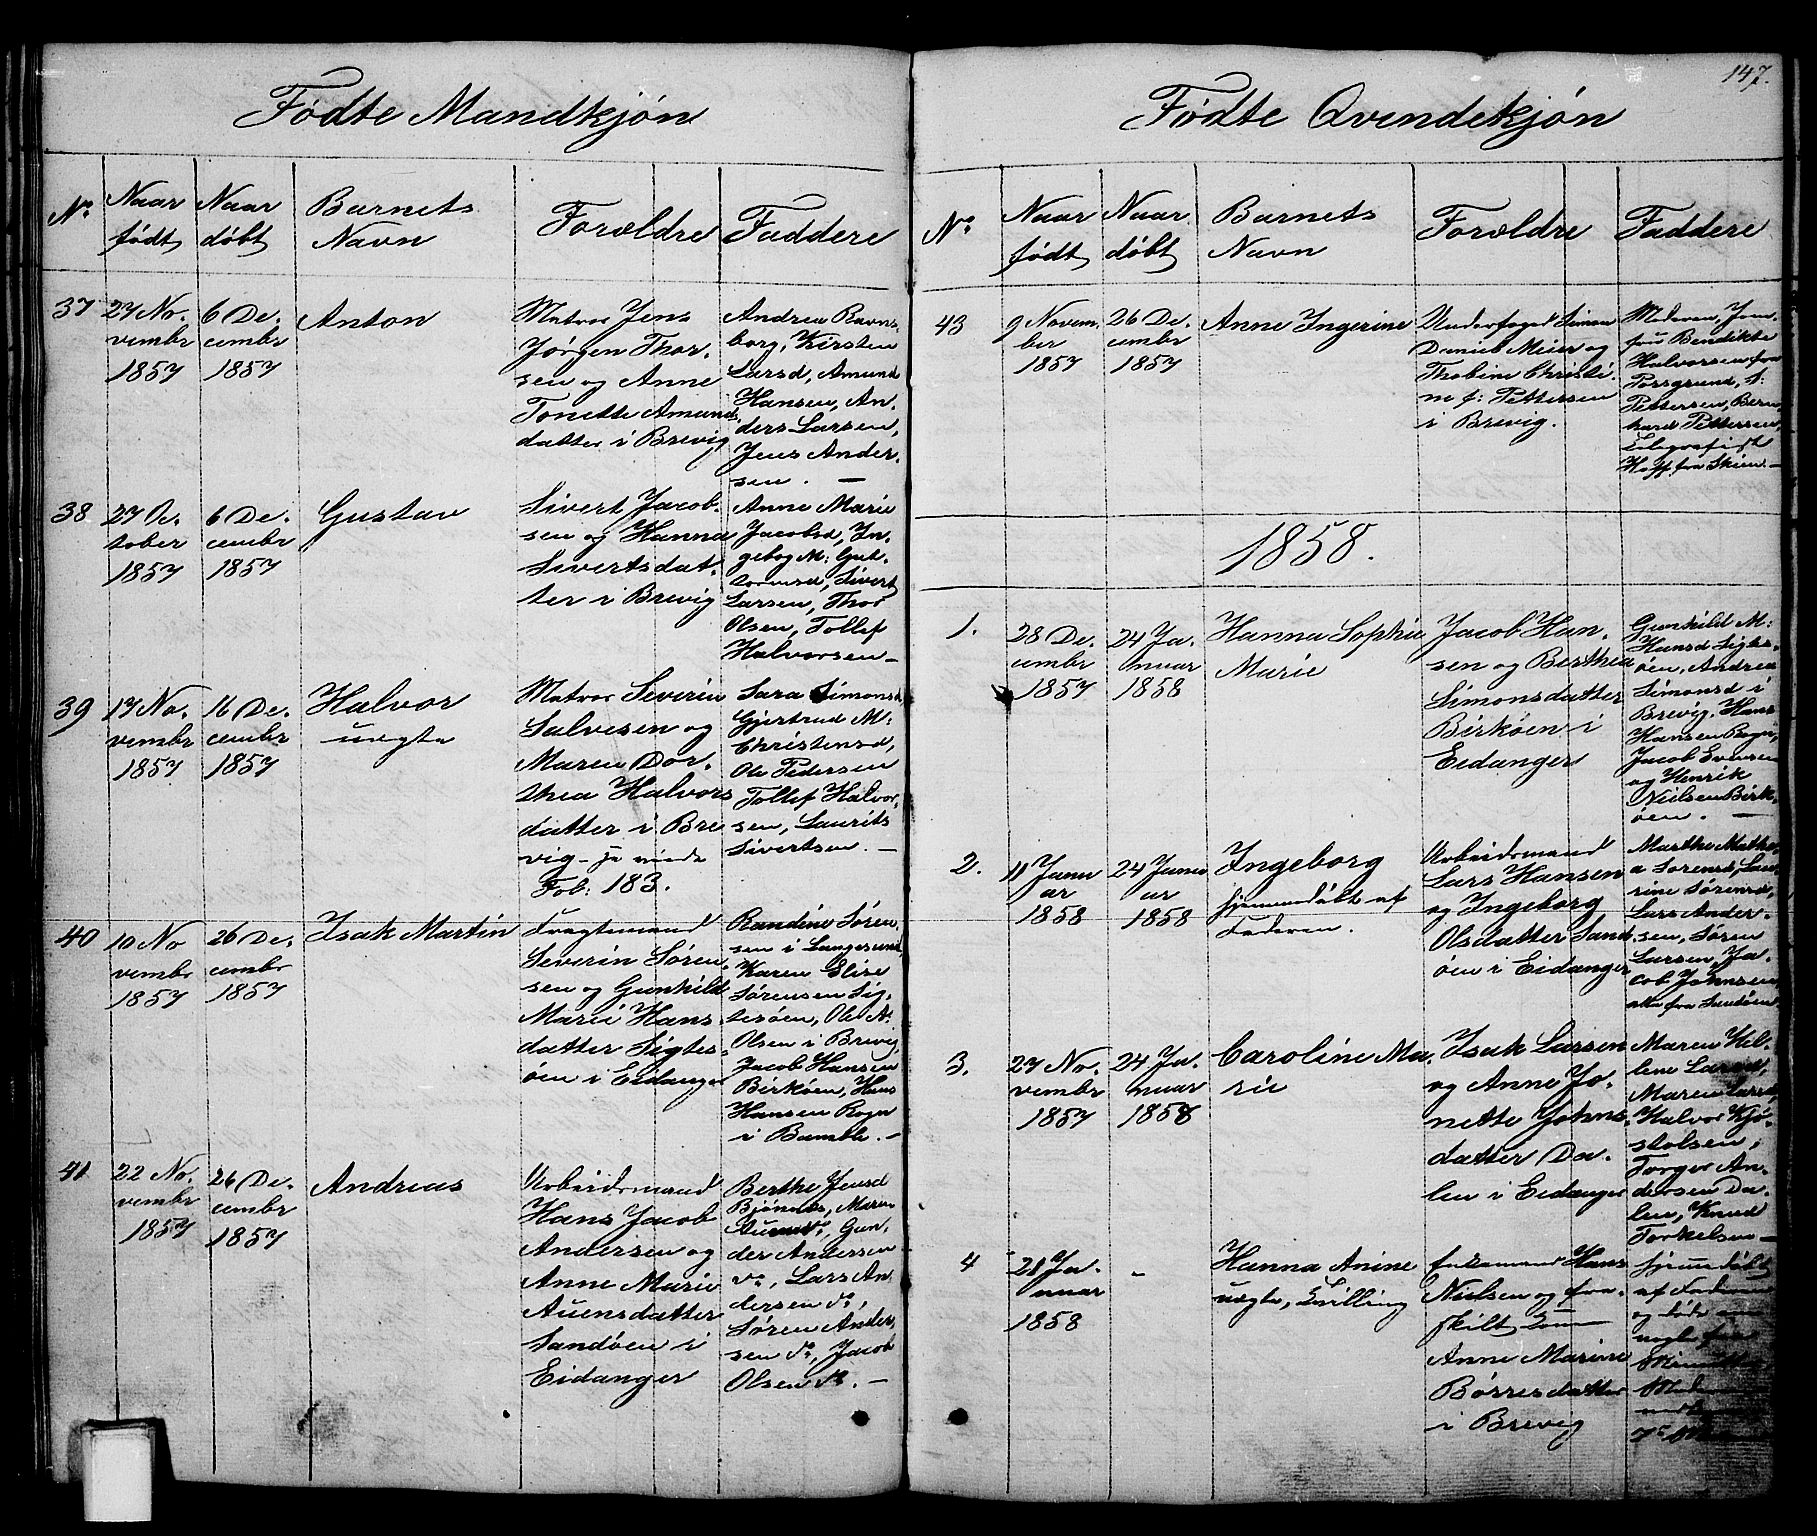 Fødte Mandkjøn
No
Naar født
Naar døbt
Barnets Navn
Forældre
Faddere
37
27 No-
vembr
1857
6 De-
cembr
1857
Anton
Matros Jens
Jørgen Thor-
sen og Anne
Tonette Amunds
datter i Brevig
Andrea Ravns-
borg, Kirsten
Larsd, Amund
Hansen, An-
ders Larsen,
Jens Ander-
sen. —
38
27 Oc-
tober
1857
6 De-
cembr
1857
Gustav
Sivert Jacob-
sen og Hanna
Sivertsdat-
ter i Brevig
Anne Marie
Jacobsd, In-
gebog M: Gut-
tormsd, Sivert
Larsen, Thor
Olsen, Tollef
Halvorsen —
39
17 No-
vembr
1857
16 De-
cembr
1857
Halvor
uægte
Matros Severin
Salvesen og
Maren Dor-
thea Halvors
datter i Bre
vig
Fol: 183.
Sara Simonsd,
Gjertrud M:
Christensd,
Ole Pedersen
Tollef Halvor-
sen, Laurits
Sivertsen. —
40
10 No
vembr
1857
26 De-
cembr
1857
Isak Martin
Fragtemand
Severin Søren-
sen og Gunhild
Marie Hans
datter Sigtes-
øen i Eidanger
Randine Søren-
sen i Langesund,
Karen Elise
Sørensen Sig-
tesøen, Ole A:
Olsen i Brevig,
Jacob Hansen
Birkøen, Hans
Hansen Rogn
i Bamble. —
41
22 No-
vembr
1857
26 De-
cembr
1857
Andreas
Arbeidsmand
Hans Jacob
Andersen og
Anne Marie
Auensdatter
Sandøen i
Eidanger
Berthe Jensd
Bjøndes, Maren
Auensd do, Gun-
der Andersen
do, Lars An
dersen do,
Søren Ander-
sen do, Jacob
Olsen do. —
147.
Fødte Qvindekjøn
No
Naar født
Naar døbt
Barnets Navn
Forældre
Faddere
43
9 Novem-
ber
1857
26 De-
cembr
1857
Anne Ingerine
Underfoged Simon
Daniel Meier og
Thobine Christi-
ne f: Pettersen
i Brevig.
Moderen, Jom-
fru Bendikte
Halvorsen fra
Porsgrund,
Pettersen, Bern-
hard Pettersen,
Telegrafist
Hoff fra Skien —
1858.
1.
28 De-
cembr
1857
24 Ja-
nuar
1858
Hanna Sophie
Marie
Jacob Han-
sen og Berthea
Simonsdatter
Birkøen i
Eidanger
Gunhild M:
Hansd Sigtes-
øen, Andrea
Simonsd i
Brevig, Hans
Hansen Rogn,
Jacob Evensen
og Henrik
Nielsen Birk-
øen. —
2.
11 Janu
ar
1858
24 Janu
ar
1858
Ingeborg
hjemmedøbt af
Faderen.
Arbeidsmand
Lars Hansen
og Ingeborg
Olsdatter Sand-
øen i Eidanger
Marthe Mathe-
a Sørensd, Lau-
rine Sørensd,
Lars Ander-
sen, Søren
Larsen, Ja-
cob Johnsen,
alle fra Sandøen
3.
27 No-
vembr
1857
24 Ja-
nuar
1858
Caroline Ma-
rie
Isak Larsen
og Anne Jo-
nette Johns-
datter Da-
len i Eidanger
Maren Hel-
lene Larsd,
Maren Larsd,
Halvor Kjø-
stolsen,
Torger An-
dersen Da-
len, Knud
Torkelsen —
4
21 Ja-
nuar
1858
-
Hanna Anine
uægte, Tvilling
Enkemand Hans
Nielsen og fra-
skilt
Anne Marine
Børresdatter
i Brevig
hjemmedøbt
af Faderen
og døde